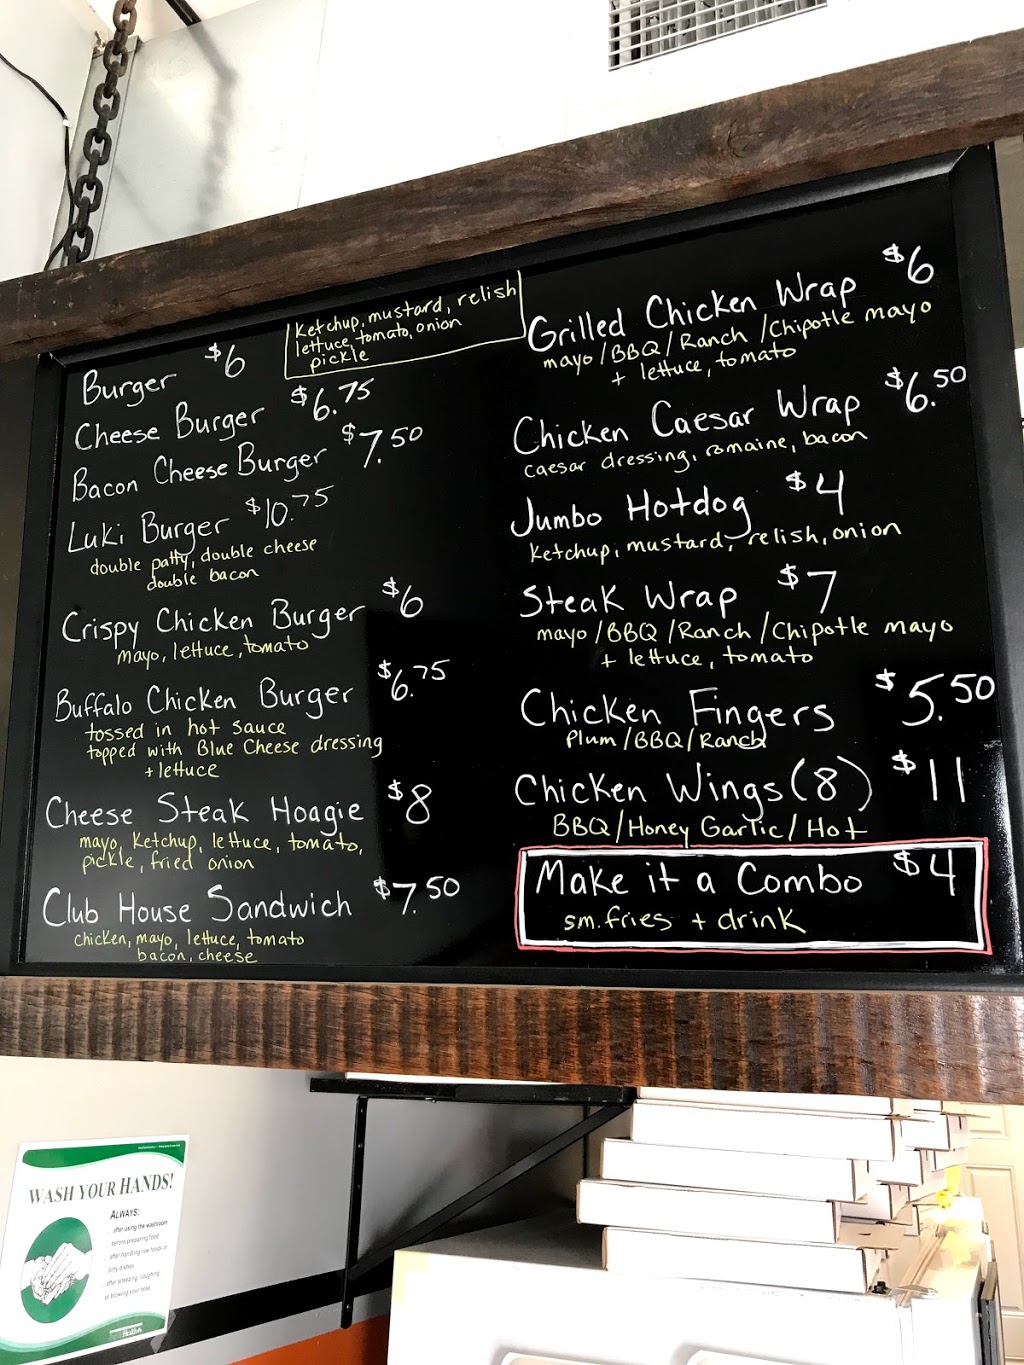 Ketchup, mustard, relish
lettuce, tomato, onion
pickle
Burger $6
Cheese Burger $6.75
Bacon Cheese Burger $7.50
Luki Burger $10.75
double patty, double cheese
double bacon
Crispy Chicken Burger $6
mayo, lettuce, tomato
Buffalo Chicken Burger $6.75
tossed in hot sauce
topped with Blue Cheese dressing
+ lettuce
Cheese Steak Hoagie $8
mayo, ketchup, lettuce, tomato,
pickle, fried onion
Club House Sandwich $7.50
chicken, mayo, lettuce, tomato
bacon, cheese
Grilled Chicken Wrap $6
mayo/BBQ/Ranch/Chipotle mayo
+ lettuce, tomato
Chicken Caesar Wrap $6.50
caesar dressing, romaine, bacon
Jumbo Hotdog $4
Ketchup, mustard, relish, onion
Steak Wrap $7
mayo/BBQ/Ranch/Chipotle mayo
+ lettuce, tomato
Chicken Fingers $5.50
Plum/BBQ/Ranch
Chicken Wings (8) $11
BBQ/Honey Garlic/Hot
Make it a Combo $4
sm. fries + drink
WASH YOUR HANDS!
ALWAYS:
after using the washroom
before preparing food
after handling raw foods or
dirty dishes
after sneezing, coughing
or blowing your nose